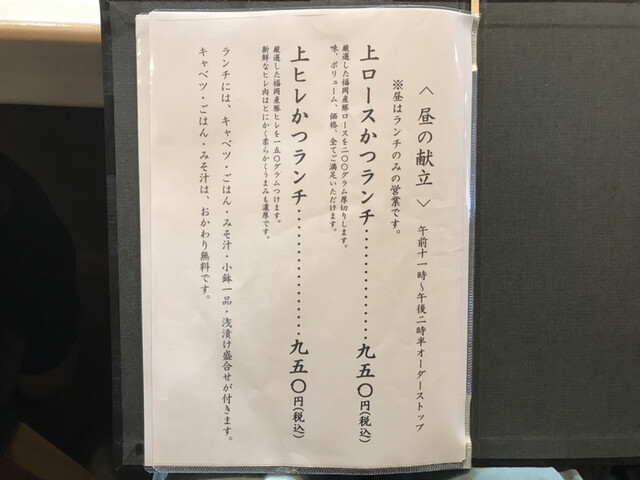 〈 昼の献立 〉 午前十一時～午後二時半オーダーストップ
※昼はランチのみの営業です。
上ロースかつランチ・・・・・・・・・・・・・・・九五〇円(税込)
厳選した福岡産豚ロースを二〇〇グラム厚切りします。
味、ボリューム、価格、全てご満足いただけます。
上ヒレかつランチ・・・・・・・・・・・・・・・・・九五〇円(税込)
厳選した福岡産豚ヒレを一五〇グラムつけます。
新鮮なヒレ肉はとにかく柔らかくうまみも濃厚です。
ランチには、キャベツ・ごはん・みそ汁・小鉢一品・浅漬け盛合せが付きます。
キャベツ・ごはん・みそ汁は、おかわり無料です。